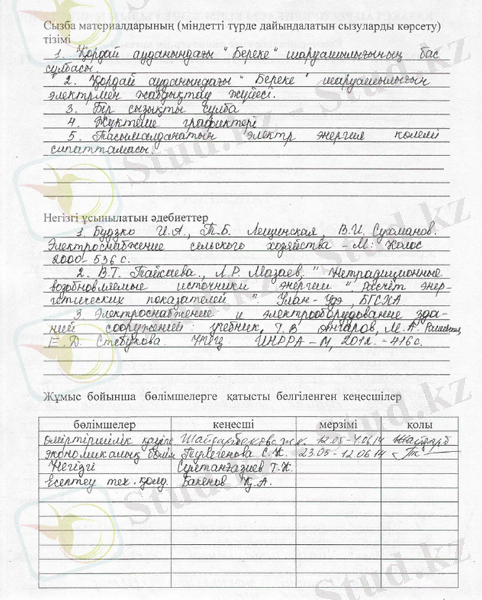 Сызба материалдарының (міндетті түрде дайындалатын сызуларды көрсету)
тізімі
1. Қордай ауданындағы "Береке" шаруашылығының бас
сұлбасы
2. Қордай ауданындағы "Береке" шаруашылығын
электрмен жабдықтау жүйесі.
3. Бір сызықты сұлба
4. Жүктеме графиктері
5. Тасымалданатын электр энергия көлемі
сипаттамасы.
Негізгі ұсынылатын әдебиеттер
1. Будзко И.А., Т.Б. Лещинская, В.И. Сукманов.
Электроснабжение сельского хозяйства - М: Колос
2000 536 с.
2. В.Т. Тайсаева., Л.Р. Мазаев, "Нетрадиционные
возобновляемые источники энергии" Расчёт энер-
гетических показателей" Улан-Удэ, БГСХА
3. Электроснабжение и электрооборудование зда-
ний сооружений: учебник, Г.В
Е.Д. Стебунова ИНФРА-М, 2012. - 416 с.
Жұмыс бойынша бөлімшелерге қатысты белгіленген кеңесшілер
бөлімшелер кеңесші мерзімі қолы
өміртіршілік
экономикалық бөлім Тулегенова С.К. 23.05-12.06.14
Негізгі Султангазиев Т.К.
Есептеу тех. қолд. Бакенов Қ.А.
Stud.kz
Stud.kz
Stud.kz
Stud.kz
Stud.kz